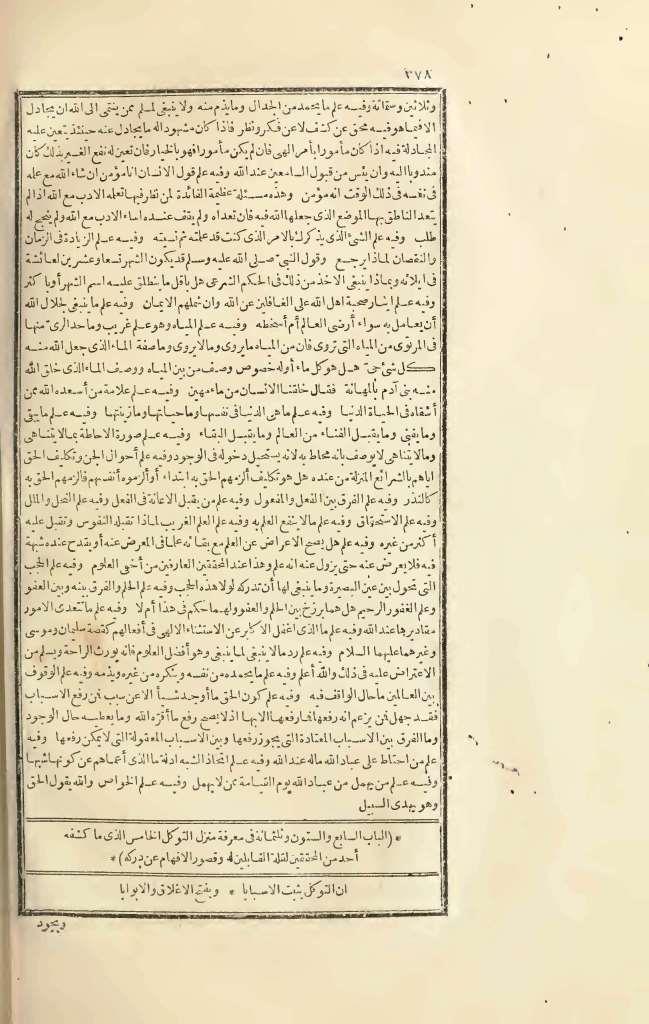 ٣٧٨
وثلاثين وستمائة وفيه علم ما يحمد من الجدال وما يذم منه ولا ينبغي لمسلم ممن ينتمي الى الله ان يجادل
الا فيما هو فيه محق عن كشف لا عن فكر ونظر فاذا كان مشهودا له ما يجادل عنه حينئذ يتعين عليه
المجادلة فيه اذا كان مأمورا بأمر الهي فان لم يكن مأمورا فهو بالخيار فان تعين له نفع الغير بذلك كان
مندوبا اليه وان يئس من قبول السامعين عند الله وفيه علم قول الانسان انا مؤمن ان شاء الله مع علمه
في نفسه في ذلك الوقت انه مؤمن وهذه مسئلة عظيمة الفائدة لمن نظر فيها تعلمه الادب مع الله اذا لم
يتعد الناطق بها الموضع الذي جعلها الله فيه فان تعداه ولم يقف عنده اساء الادب مع الله ولم ينجح له
طلب وفيه علم الشئ الذي يذكرك بالامر الذي كنت قد علمته ثم نسيته وفيه علم الزيادة في الزمان
والنقصان لماذا يرجع وقول النبي صلى الله عليه وسلم قد يكون الشهر تسعا وعشرين لعائشة
في ايلائه وبماذا ينبغي الاخذ من ذلك في الحكم الشرعي هل باقل ما ينطلق عليه اسم الشهر أو باكثر
وفيه علم ايثار صحبة اهل الله على الغافلين عن الله وان شملهم الايمان وفيه علم ما ينبغي لجلال الله
أن يعامل به سواء أرضى العالم أم أسخطه وفيه علم المياه وهو علم غريب وما حد الرى منها
في المرتوى من المياه التي تروى فان من المياه ما يروى وما لا يروى وما صفة الماء الذي جعل الله منه
كل شئ حي هل هو كل ماء أو له خصوص وصف من بين المياه ووصف الماء الذي خلق الله
منه بني آدم بالمهانة فقال خلقنا الانسان من ماء مهين وفيه علم علامة من أسعده الله ممن
أشقاه في الحياة الدنيا وفيه علم ما هي الدنيا في نفسها وما حياتها وما زينتها وفيه علم ما يبقى
وما يفنى وما يقبل الفناء من العالم وما يقبل البقاء وفيه علم صورة الاحاطة بما لا يتناهى
وما لا يتناهى لا يوصف بانه محاط به لانه يستحيل دخوله في الوجود وفيه علم أحوال الجن وتكليف الحق
اياهم بالشرائع المنزلة من عنده هل هو تكليف ألزمهم الحق به ابتداء أو ألزموه أنفسهم فالزمهم الحق به
كالنذر وفيه علم الفرق بين الفعل والمفعول وفيه علم من يقبل الاعانة في الفعل وفيه علم النحل والملل
وفيه علم الاستحقاق وفيه علم ما لا ينتفع العلم به وفيه علم العلم الغريب لماذا تقبله النفوس وتقبل عليه
أكثر من غيره وفيه علم هل يصح الاعراض عن العلم مع بقائه علما في المعرض عنه أو يقدح عنده شبهة
فيه فلا يعرض عنه حتى يزول عنه انه علم وهذا عند المحققين العارفين من أخفى العلوم وفيه علم الحجب
التي تحول بين عين البصيرة وما ينبغي لها أن تدركه لولا هذه الحجب وفيه علم الحلم والفرق بينه وبين العفو
وعلم الغفور الرحيم هل هما برزخ بين الحلم والعفو ولهما حكم في هذا أم لا وفيه علم ما تتعدى الامور
مقاديرها عند الله وفيه علم ما الذي اغفل الاكابر عن الاستثناء الالهي في أفعالهم كقصة سليمان وموسى
وغيرهما عليهما السلام وفيه علم رد ما لا ينبغي لما ينبغي وهو أفضل العلوم فانه يورث الراحة ويسلم من
الاعتراض عليه في ذلك والله أعلم وفيه علم ما يحمده من نفسه وينكره من غيره ويذمه وفيه علم الوقوف
بين العالمين ما حال الواقف فيه وفيه علم كون الحق ما أوجد شيأ الا عن سبب فمن رفع الاسباب
فقد جهل فمن يزعم انه رفعها فما رفعها الا بها اذ لا يصح رفع ما أقره الله وما يعطيه حال الوجود
وما الفرق بين الاسباب المعتادة التي يجوز رفعها وبين الاسباب المعقولة التي لا يمكن رفعها وفيه
علم من احتاط على عباد الله ماله عند الله وفيه علم اتخاذ الشبه ادلة ما الذي أعماهم عن كونها شبها
وفيه علم من يهمل من عباد الله يوم القيامة ممن لا يهمل وفيه علم الخواص والله يقول الحق
وهو يهدي السبيل
* (الباب السابع والستون وثلثمائة في معرفة منزل التوكل الخامس الذي ما كشفه
أحد من المحققين لقلة القابلين له وقصور الافهام عن دركه) *
ان التوكل يثبت الاسبابا * ويفتح الاغلاق والابوابا
ويجود